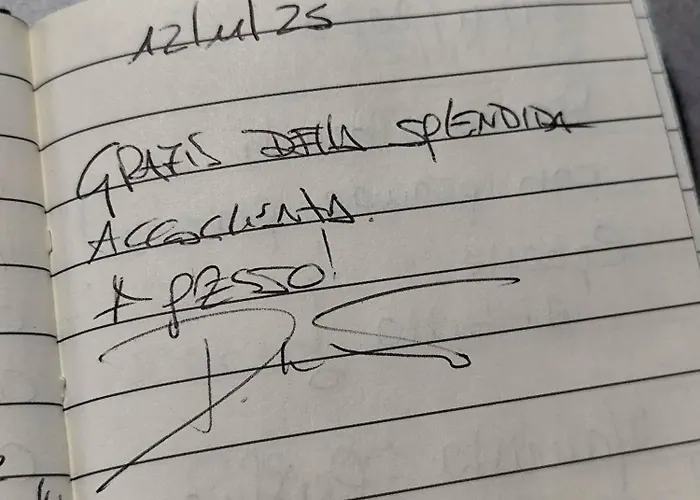 12/11/25
GRAZIE DELLA SPLENDIDA
ACCOGLIENZA.
A PRESTO!